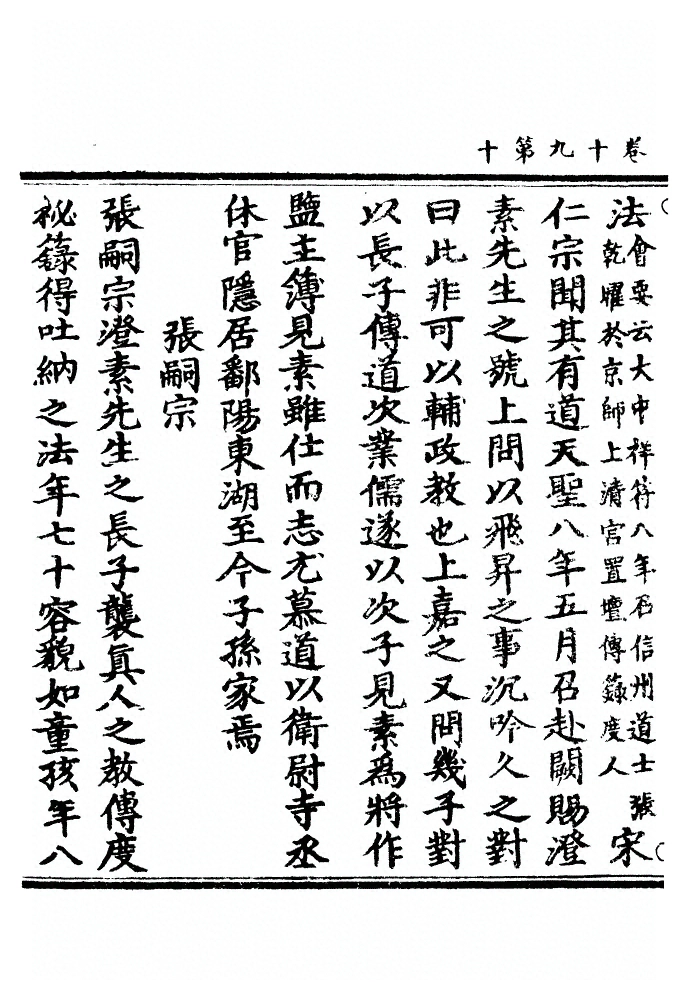 卷十九第十
法會要云大中祥符八年召信州道士張乾曜於京師上清宮置壇傳籙度人宋
仁宗聞其有道天聖八年五月召赴闕賜澄
素先生之號上問以飛昇之事沉吟久之對
曰此非可以輔政教也上嘉之又問幾子對
以長子傳道次業儒遂以次子見素爲將作
監主簿見素雖仕而志尤慕道以衛尉寺丞
休官隱居鄱陽東湖至今子孫家焉
張嗣宗
張嗣宗澄素先生之長子襲眞人之教傳度
祕籙得吐納之法年七十容貌如童孩年八